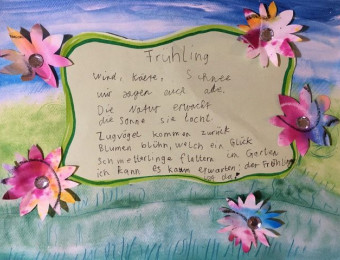 Frühling
Wind, Kälte, Schnee
wir sagen euch ade.
Die Natur erwacht
die Sonne sie lacht.
Zugvögel kommen zurück
Blumen blühn, welch ein Glück
Schmetterlinge flattern im Garten
ich kann es kaum erwarten: der Frühling
ist da!